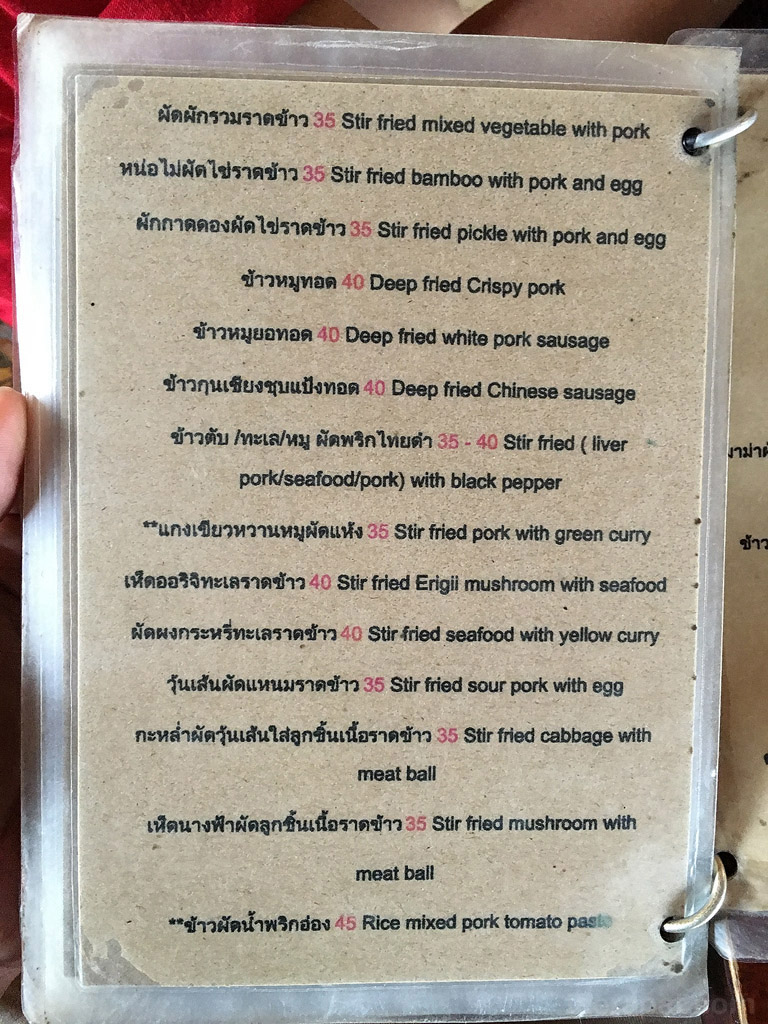 ผัดผักรวมราดข้าว 35 Stir fried mixed vegetable with pork
หน่อไม่ผัดไข่ราดข้าว 35 Stir fried bamboo with pork and egg
ผักกาดดองผัดไข่ราดข้าว 35 Stir fried pickle with pork and egg
ข้าวหมูทอด 40 Deep fried Crispy pork
ข้าวหมูยอทอด 40 Deep fried white pork sausage
ข้าวกุนเชียงชุบแป้งทอด 40 Deep fried Chinese sausage
ข้าวตับ /ทะเล/หมู ผัดพริกไทยดำ 35 - 40 Stir fried ( liver
pork/seafood/pork) with black pepper
**แกงเขียวหวานหมูผัดแห้ง 35 Stir fried pork with green curry
เห็ดออริจิทะเลราดข้าว 40 Stir fried Erigii mushroom with seafood
ผัดผงกระหรี่ทะเลราดข้าว 40 Stir fried seafood with yellow curry
วุ้นเส้นผัดแหนมราดข้าว 35 Stir fried sour pork with egg
กะหล่ำผัดวุ้นเส้นใส่ลูกชิ้นเนื้อราดข้าว 35 Stir fried cabbage with
meat ball
เห็ดนางฟ้าผัดลูกชิ้นเนื้อราดข้าว 35 Stir fried mushroom with
meat ball
**ข้าวผัดน้ำพริกอ่อง 45 Rice mixed pork tomato paste